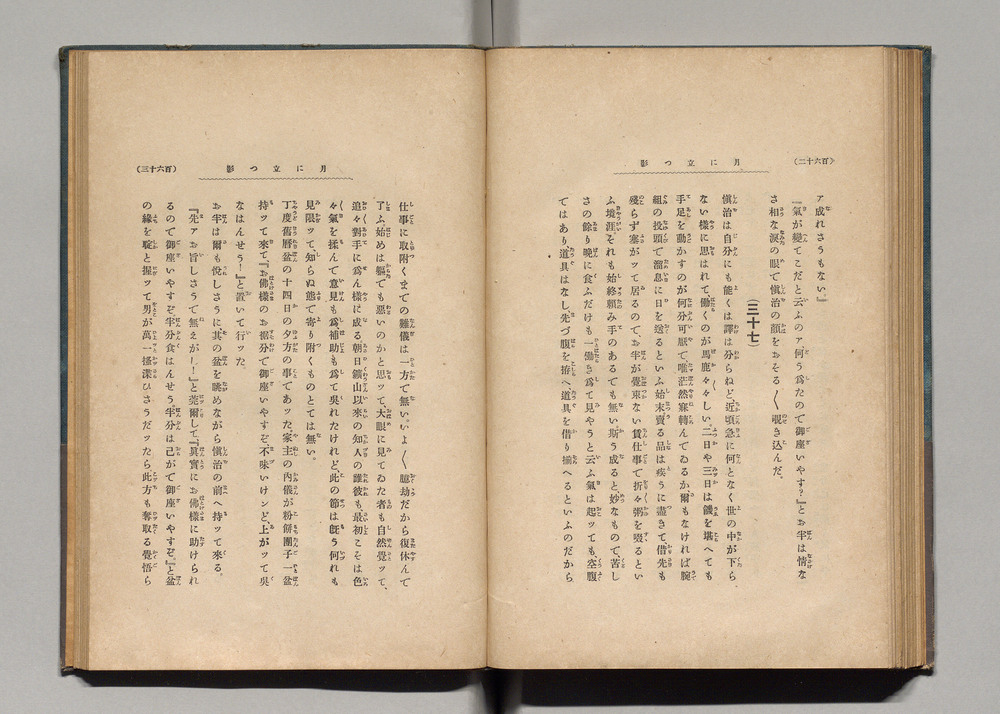 (百六十二)
月に立つ影
ァ成れさうもない』
『氣が變てこだと云ふのァ、何う爲たので御座いやす？』とお半は情な
さ相な涙の眼で愼治の顏をおそる〱覗き込んだ。
(三十七)
愼治は自分にも能くは譯は分らねど、近頃急に何となく世の中が下ら
ない樣に思はれて、働くのが馬鹿々々しい。二日や三日は饑を堪へても
手足を動かすのが何分可厭で、唯茫然寐轉んでゐるか、爾もなければ腕
組の投頭で溜息に日を送るといふ始末、賣る品は疾うに盡きて借先も
殘らず塞がッて居るので、お半が覺束ない賃仕事で折々粥を啜るとい
ふ境涯、それも始終頼み手のあるでも無い。斯う成ると妙なもので、苦し
さの餘り晩に食ふだけも一働き爲て見やうと云ふ氣は起ッても、空腹
ではあり道具はなし、先づ腹を拵へ、道具を借り揃へるといふのだから
月に立つ影
(百六十三)
仕事に取附くまでの難儀は一方で無い。いよ〱臆劫だから復休んで
了ふ。始めは軀でも惡いのかと思ッて、大眼に見てゐた者も自然覺ッて、
追々對手に爲ん樣に成る、朝日鑛山以來の知人の誰彼も、最初こそは色
々氣を揉んで意見も爲、補助も爲て呉れたけれど、此の節は既う何れも
見限ッて、知らぬ態で寄り附くものとては無い。
丁度舊曆盆の十四日の夕方の事であッた。家主の内儀が粉餅團子一盆
持ッて來て、『お佛樣のお据分で御座いやすぞ、不味いけンど、上がッて呉
なはんせう！』と置いて行ッた。
お半は爾も悅しさうに其の盆を眺めながら愼治の前へ持ッて來る。
『先ァお旨しさうで無えがー！』と莞爾して、『眞實にお佛樣に助けられ
るので御座いやすぞ、半分食はんせう、半分は己がで御座いやすぞ。』と盆
の緣を聢と握ッて男が萬一搔潔ひさうだッたら此方も奪取る覺悟ら